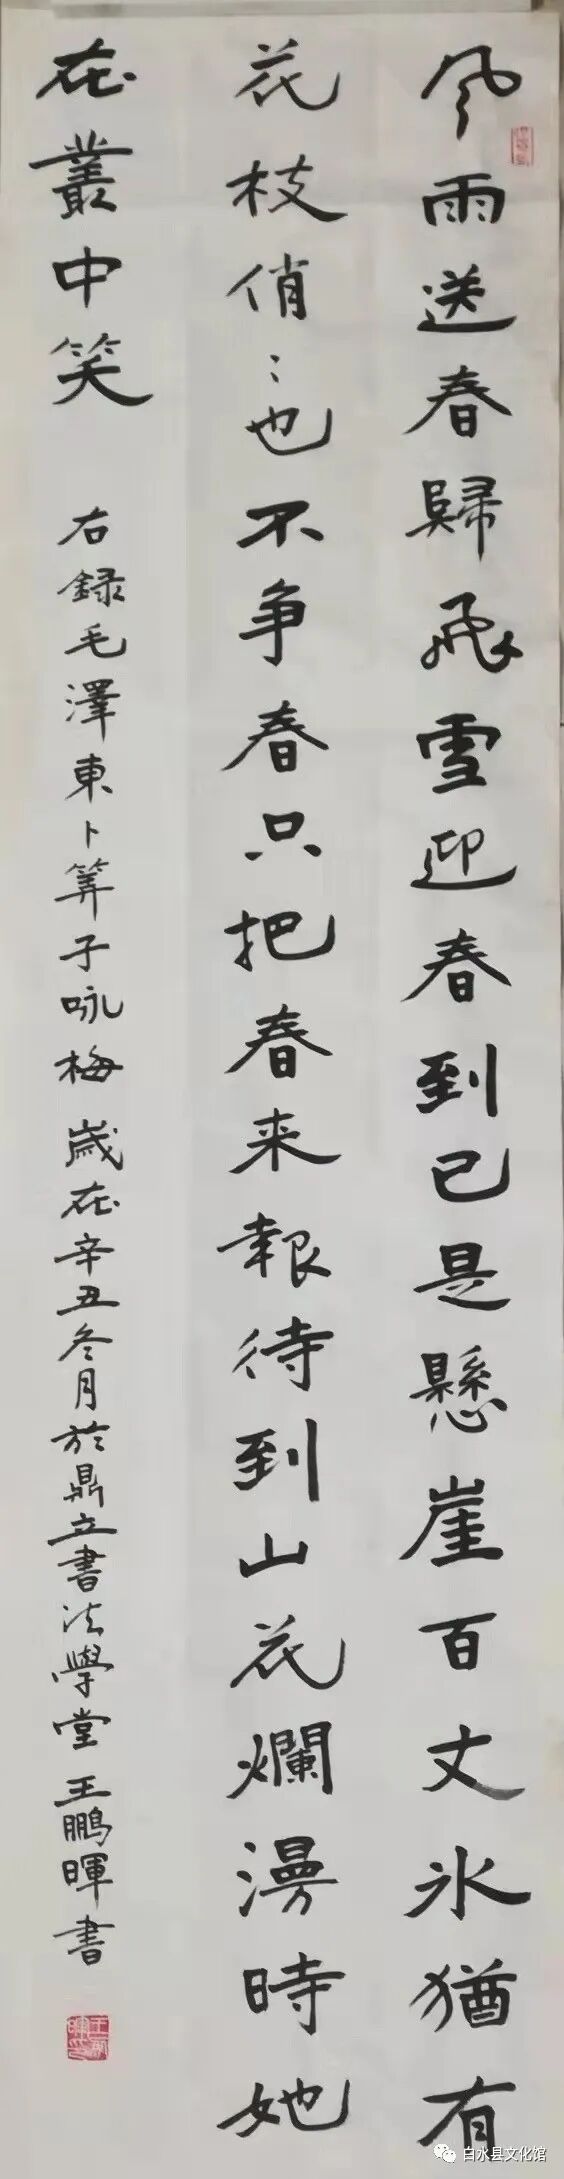 風雨送春歸飛雪迎春到已是懸崖百丈冰猶有
花枝俏〻也不争春只把春来報待到山花爛漫時她
在叢中笑
右録毛澤東卜算子咏梅 歲在辛丑冬月於鼎立書法學堂 王鵬暉書
白水县文化馆